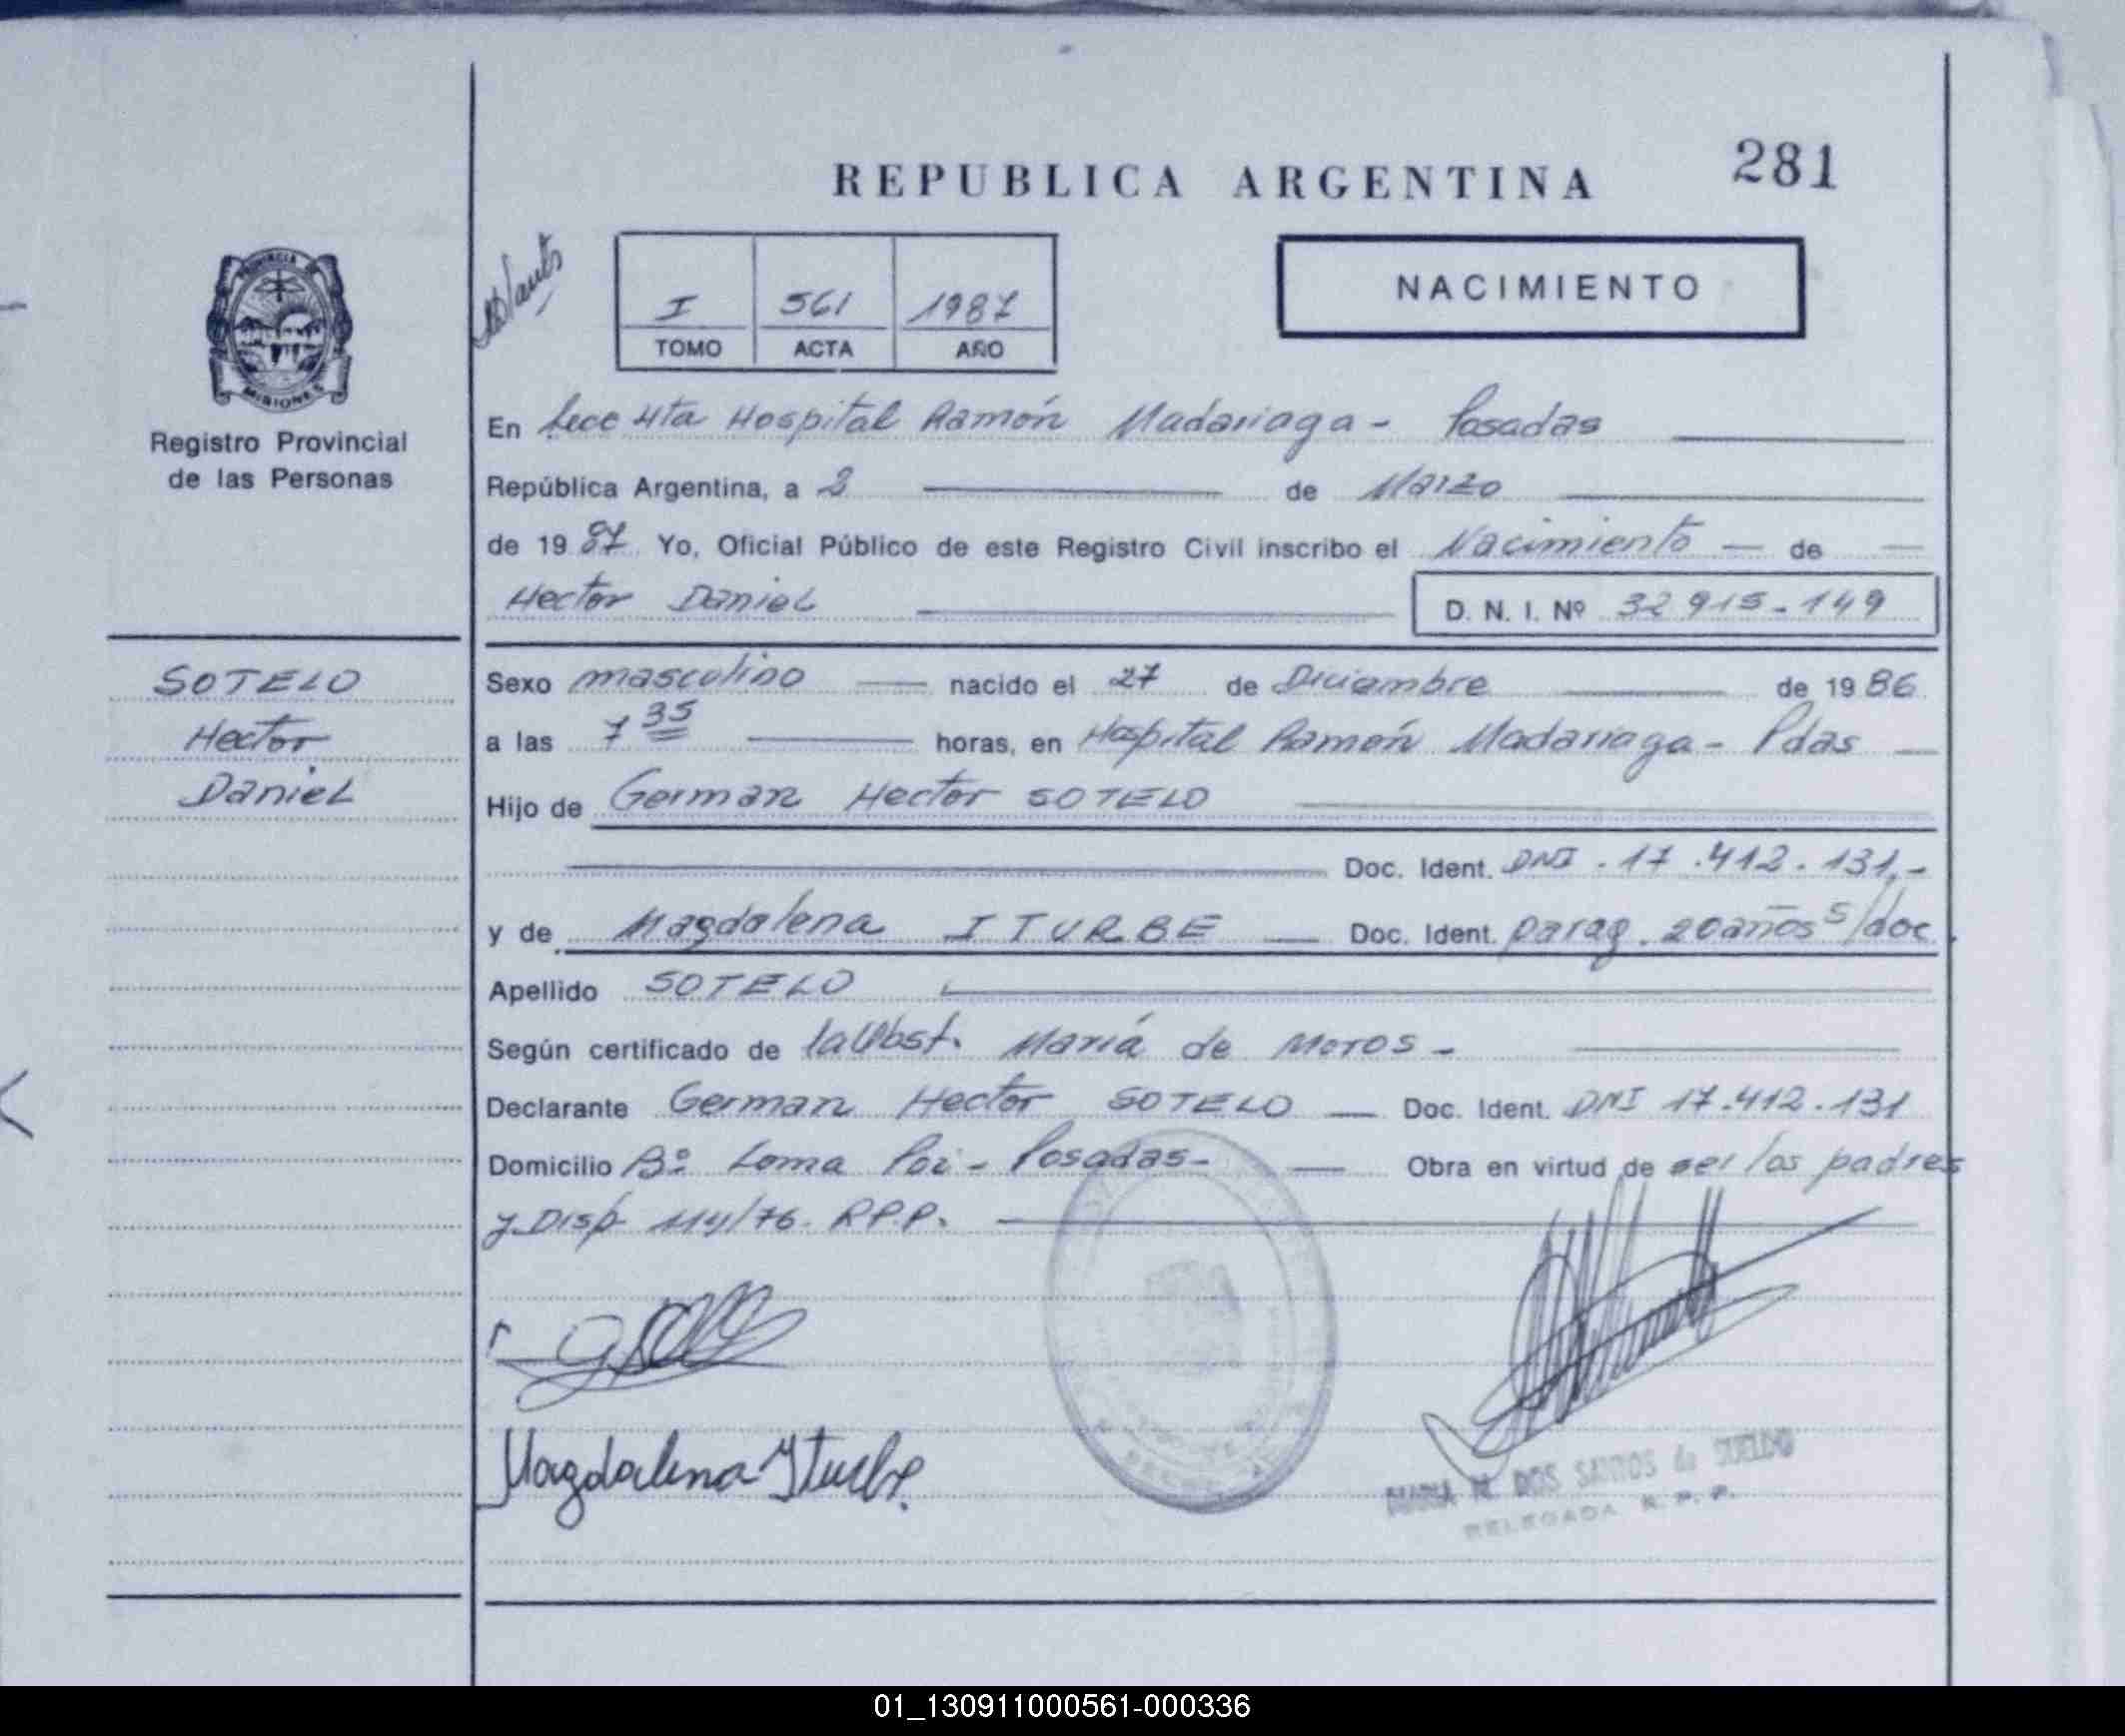 REPUBLICA ARGENTINA
281
PROVINCIA DE
MISIONES
Registro Provincial
de las Personas
I 561 1987
TOMO ACTA AÑO
NACIMIENTO
En Secc 4ta Hospital Ramón Madariaga - Posadas
República Argentina, a 2 de Marzo
de 1987 Yo, Oficial Público de este Registro Civil inscribo el Nacimiento de
Hector Daniel D. N. I. Nº 32 915-149
SOTELO
Hector
Daniel
Sexo masculino nacido el 27 de Diciembre de 1986
a las 7 35 horas, en Hospital Ramón Madariaga - Pdas
Hijo de German Hector SOTELO
Doc. Ident. DNI . 17 .412. 131.-
y de Magdalena ITURBE Doc. Ident. parag. 20 años s/doc.
Apellido SOTELO
Según certificado de la Obst. María de Moros -
Declarante German Hector SOTELO Doc. Ident. DNI 17.412.131
Domicilio Bº Loma Poi - Posadas - Obra en virtud de ser los padres
y Disp 114/76. R.P.P.
Magdalena Iturbe.
MARIA M. DOS SANTOS de SUELDO
DELEGADA R. P. P.
01_130911000561-000336